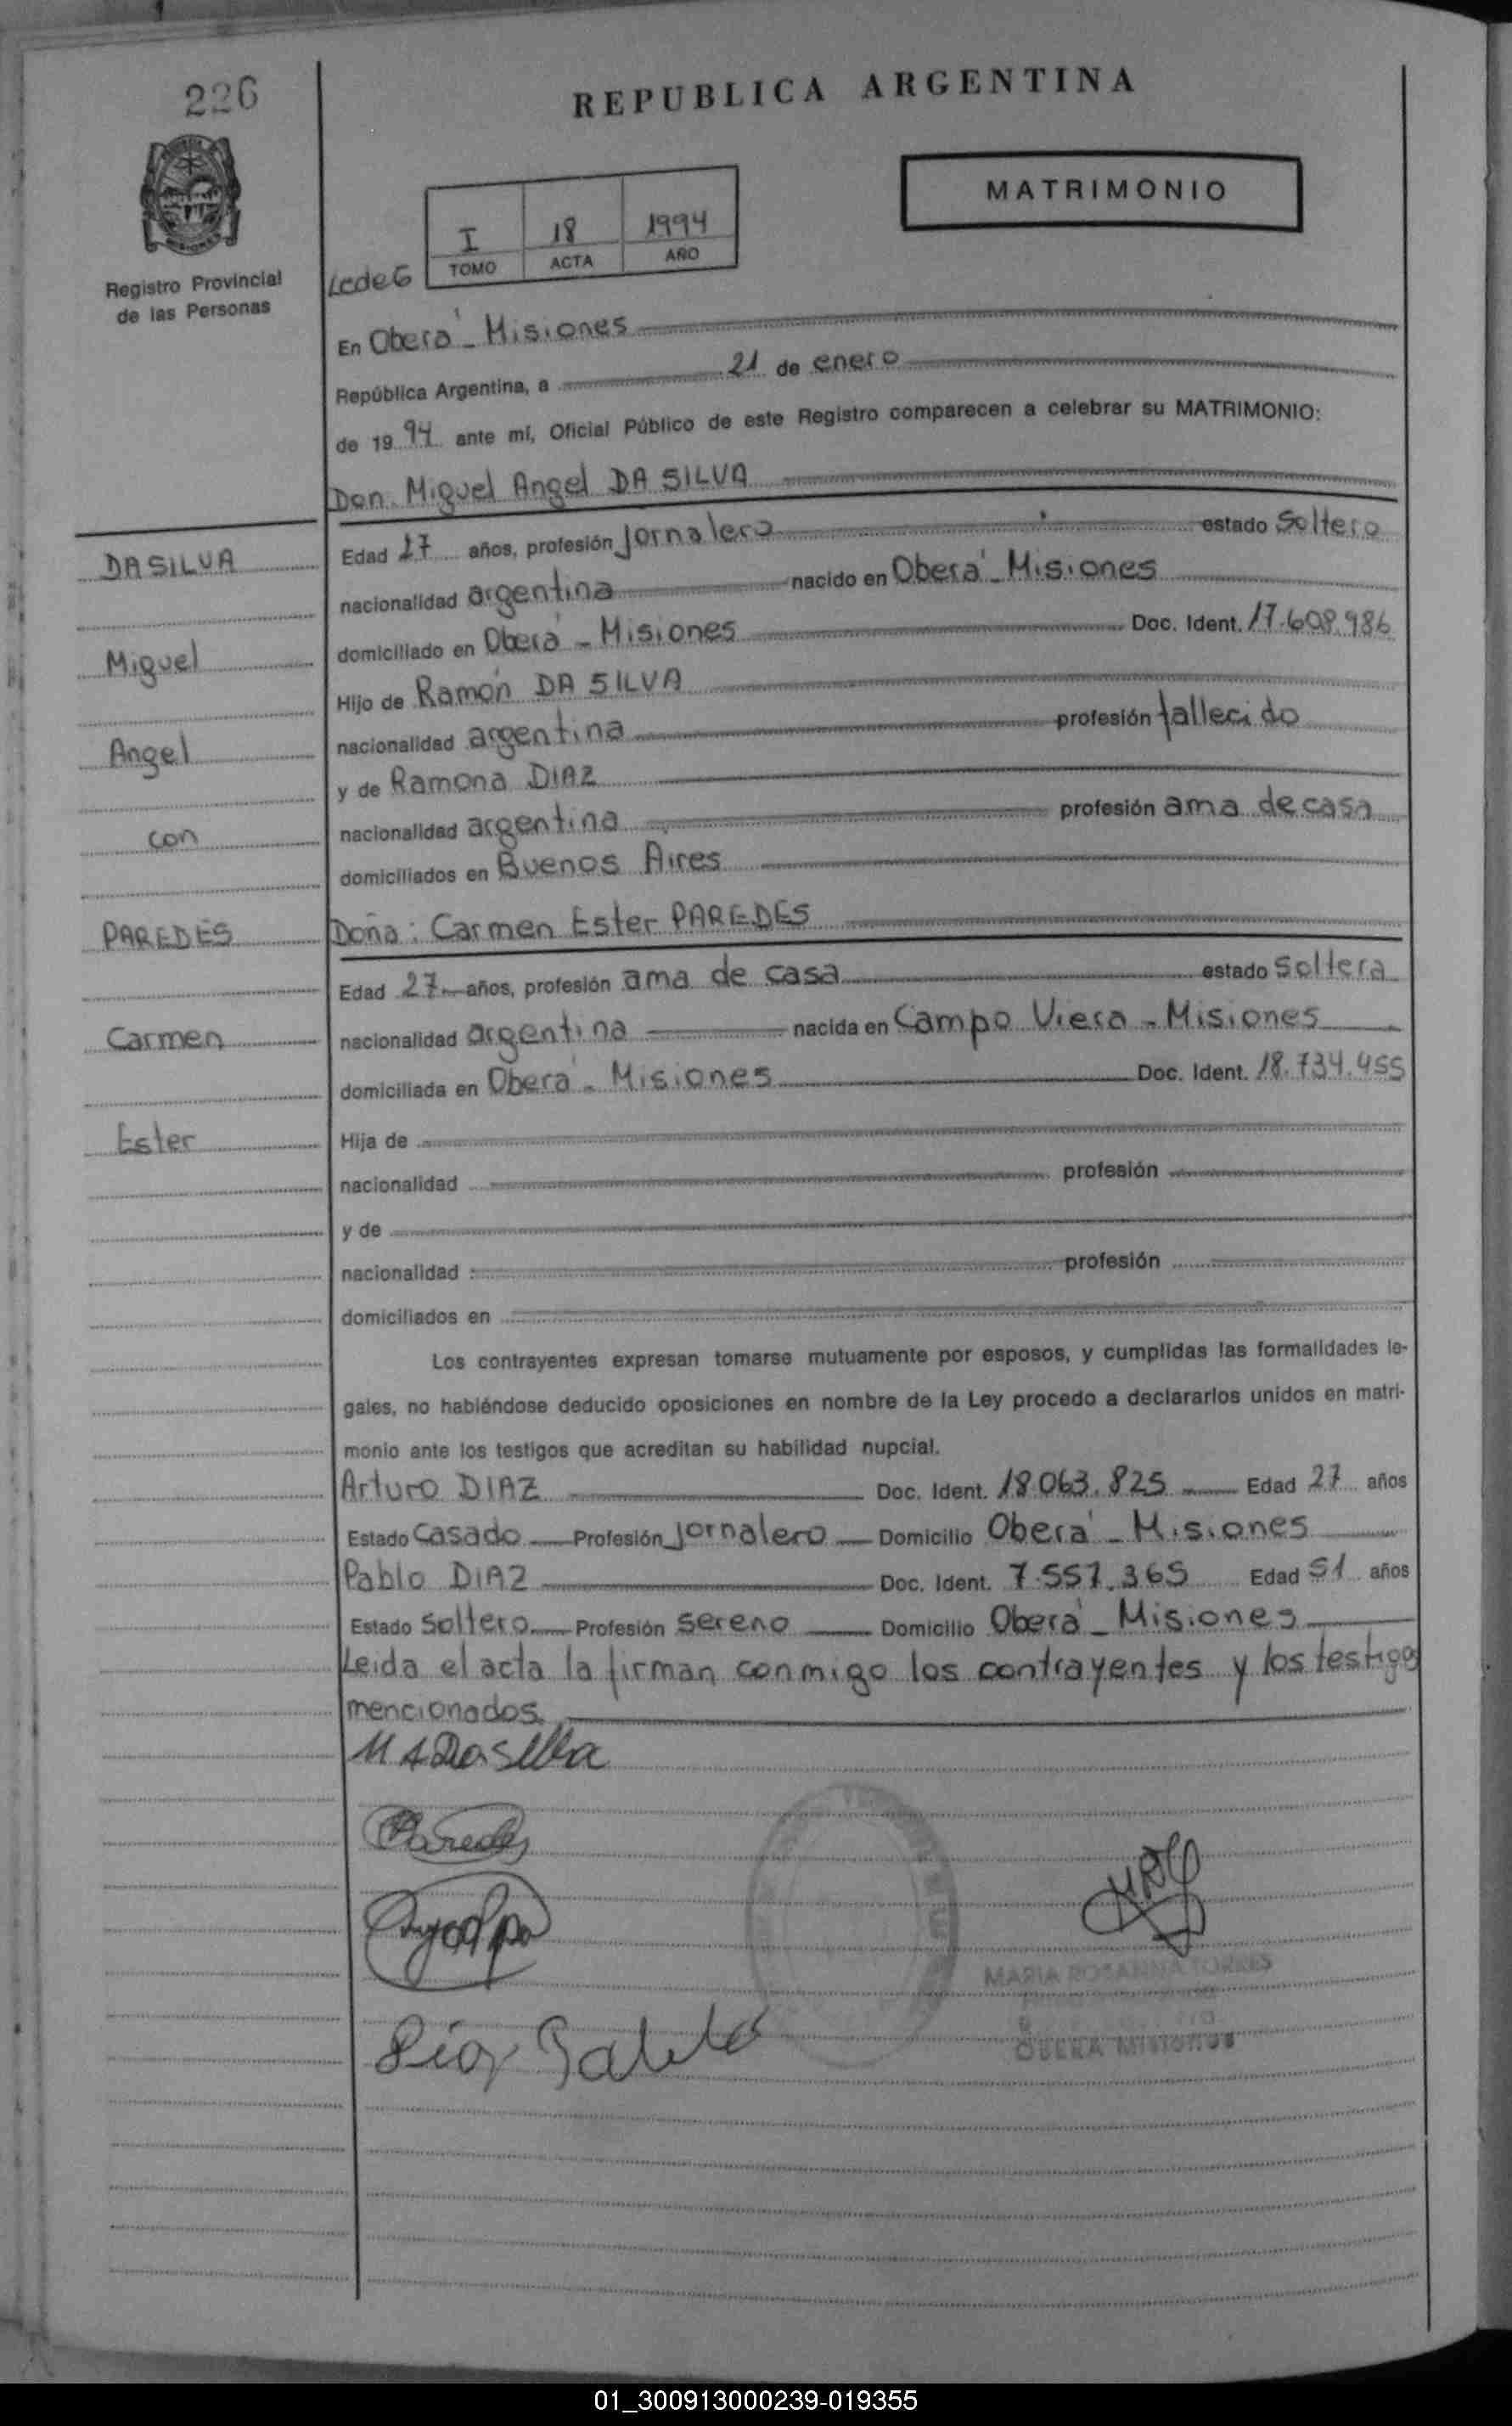 226
REPUBLICA ARGENTINA
MATRIMONIO
I 18 1994
TOMO ACTA AÑO
Registro Provincial
de las Personas
En Oberá - Misiones
República Argentina, a 21 de enero
de 1994 ante mí, Oficial Público de este Registro comparecen a celebrar su MATRIMONIO:
Don Miguel Angel DA SILVA
DA SILVA
Edad 27 años, profesión jornalero estado Soltero
nacionalidad argentina nacido en Oberá - Misiones
Miguel
domiciliado en Oberá - Misiones Doc. Ident. 17.608.986
Hijo de Ramón DA SILVA
Angel
nacionalidad argentina profesión fallecido
y de Ramona DIAZ
con
nacionalidad argentina profesión ama de casa
domiciliados en Buenos Aires
PAREDES
Doña: Carmen Ester PAREDES
Edad 27 años, profesión ama de casa estado Soltera
Carmen
nacionalidad argentina nacida en Campo Viera - Misiones
domiciliada en Oberá - Misiones Doc. Ident. 18.734.455
Ester
Hija de
nacionalidad profesión
y de
nacionalidad : profesión
domiciliados en
Los contrayentes expresan tomarse mutuamente por esposos, y cumplidas las formalidades le-
gales, no habiéndose deducido oposiciones en nombre de la Ley procedo a declararlos unidos en matri-
monio ante los testigos que acreditan su habilidad nupcial.
Arturo DIAZ Doc. Ident. 18.063.825 Edad 27 años
Estado Casado Profesión jornalero Domicilio Oberá - Misiones
Pablo DIAZ Doc. Ident. 7.557.365 Edad 51 años
Estado soltero Profesión sereno Domicilio Oberá - Misiones
Leida el acta la firman conmigo los contrayentes y los testigos
mencionados.
M A Da Silva
Paredes
MARIA ROSANNA TORRES
OBERA MISIONES
01_300913000239-019355